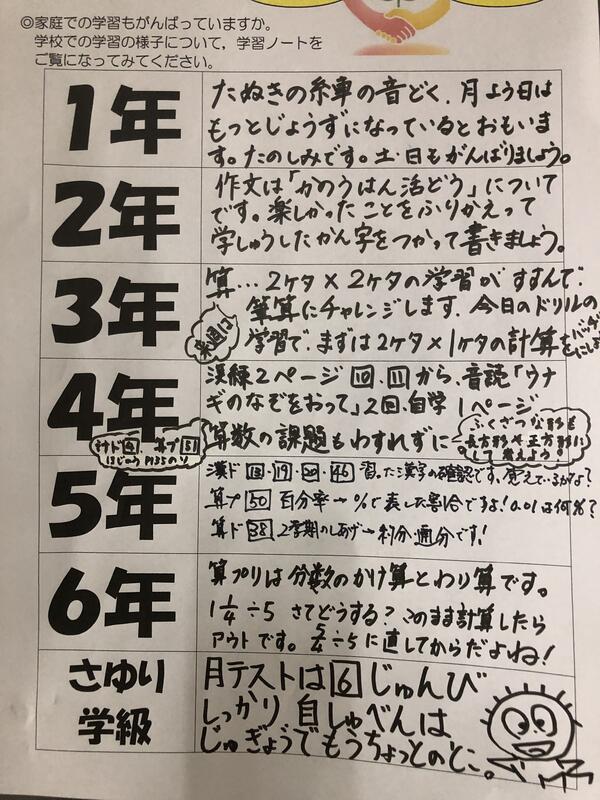 ◎家庭での学習もがんばっていますか。
学校での学習の様子について，学習ノートを
ご覧になってみてください。
1年
たぬきの糸車の音どく、月よう日は
もっとじょうずになっているとおもいま
す。たのしみです。土・日もがんばりましょう。
2年
作文は「かのうはん活どう」について
です。楽しかったことをふりかえって
学しゅうしたかん字をつかって書きましょう。
3年
算…2ケタ×2ケタの学習がすすんで、
来週は
筆算にチャレンジします。今日のドリルの
学習で、まずは2ケタ×1ケタの計算を
バッチリにしよう
4年
漢練2ページ 10、11から、音読「ウナ
ギのなぞをおって」2回、自学1ページ
算数の課題もわすれずに
ふくざつな形も
長方形や正方形に
して考えよう！
算プ51
P135のり
5年
漢ド 18・19・20・46 習った漢字の確認です。覚えているかな？
算プ 50 百分率→％で表した割合ですよ！0.01は何％？
算ド 38 2学期のしあげ→約分・通分です！
6年
算プリは分数のかけ算とわり算です。
1 1/4÷5 さてどうする？このまま計算したら
アウトです。5/4÷5に直してからだよね！
さゆり
学級
月テストは6 じゅんび
しっかり 自しゅべんは
じゅぎょうでもうちょっとのとこ。